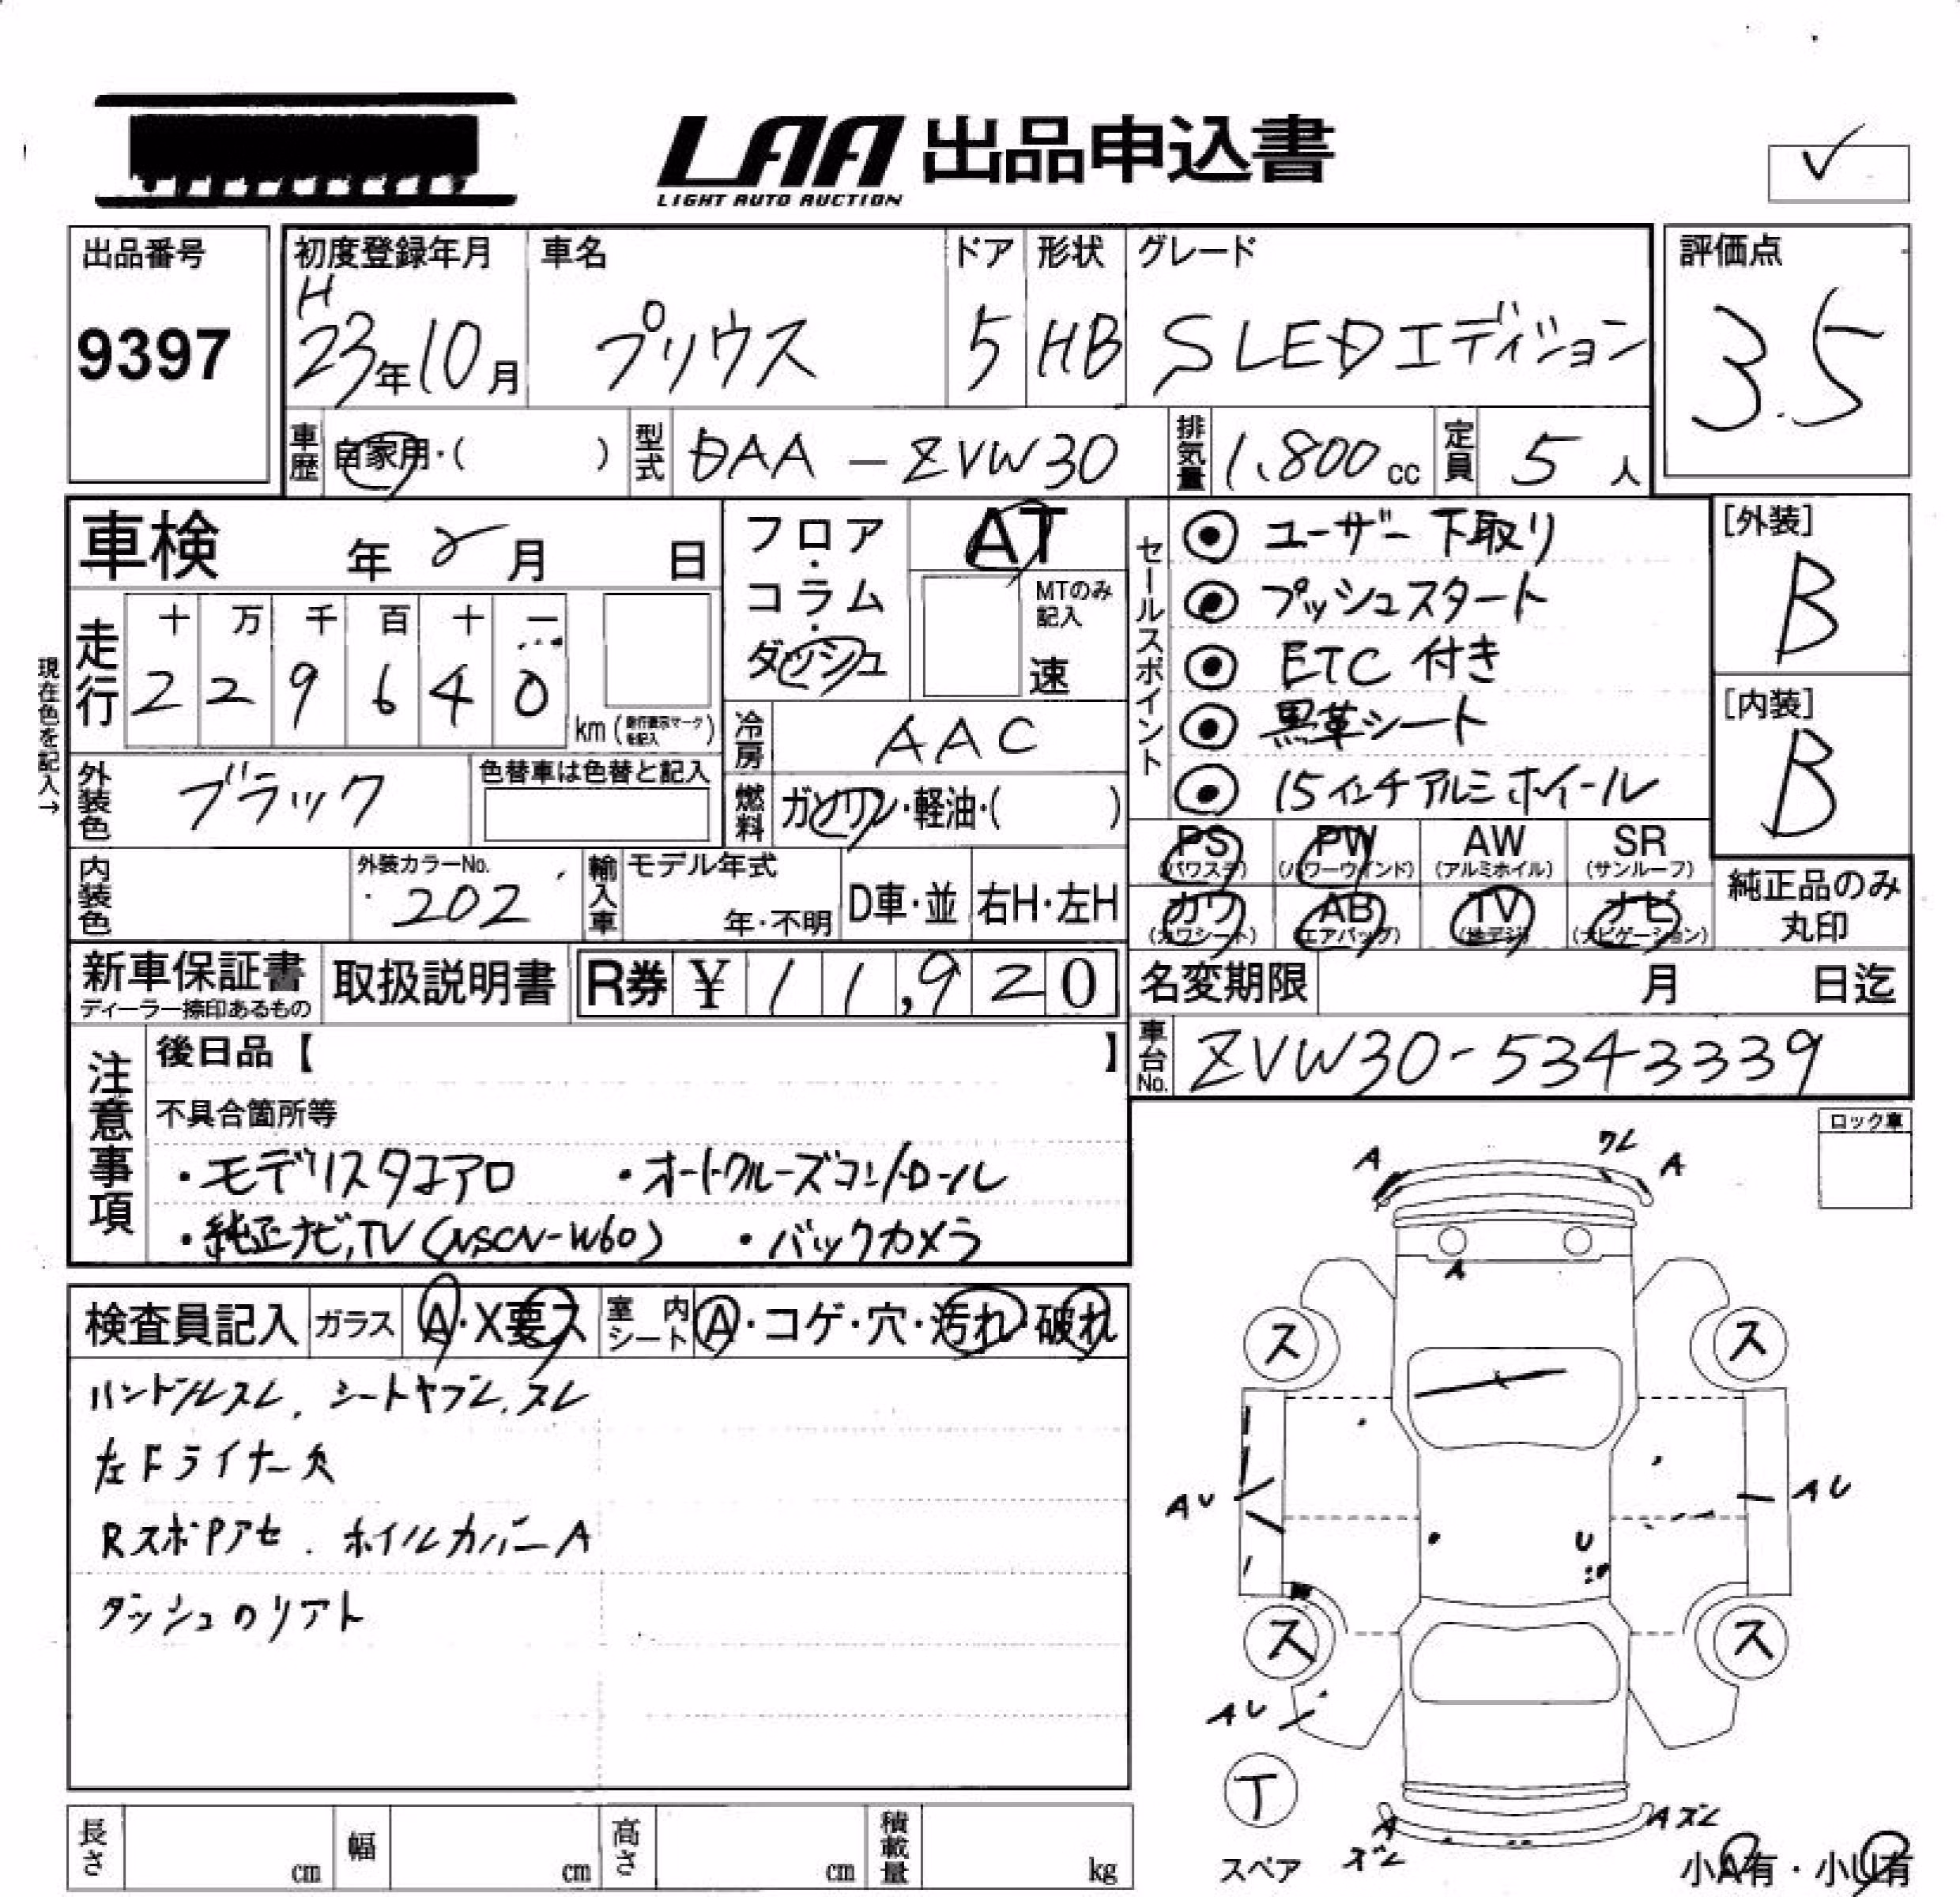 LAA 出品申込書
LIGHT AUTO AUCTION
✓
出品番号
9397
初度登録年月
H
23年10月
車名
プリウス
ドア
5
形状
HB
グレード
S LEDエディション
評価点
3.5
車歴
自家用・( )
型式
DAA-ZVW30
排気量
1,800cc
定員
5人
車検 年 月 日
フロア・コラム・ダッシュ
AT
MTのみ記入
速
走行
十 万 千 百 十 一
2 2 9 6 4 0
km
現在色を記入→
冷房
AAC
外装色
ブラック
色替車は色替と記入
燃料
ガソリン・軽油・( )
内装色
外装カラーNo.
202
輸入車
モデル年式
年・不明
D車・並
右H・左H
セールスポイント
◉ユーザー下取り
◉プッシュスタート
◉ETC付き
◉黒革シート
◉15インチアルミホイール
[外装]
B
[内装]
B
PS (パワステ)
PW (パワーウインド)
AW (アルミホイル)
SR (サンルーフ)
カワ (カワシート)
AB (エアバッグ)
TV (地デジ)
ナビ (ナビゲーション)
純正品のみ
丸印
新車保証書
ディーラー捺印あるもの
取扱説明書
R券 ¥11,920
名変期限 月 日迄
車台No.
ZVW30-5343339
注意事項
後日品【 】
不具合箇所等
・モデリスタエアロ ・オートクルーズコントロール
・純正ナビ,TV(NSCN-W60) ・バックカメラ
ロック車
検査員記入
ガラス
A・X要ス
室内シート
A・コゲ・穴・汚れ・破れ
ハンドルスレ、シートヤブレ、スレ
左Fライナー欠
RスポPアセ、ホイルカバーA
ダッシュのリアト
A
クレ
A
A
ス
ス
AU
AU
U
ス
ス
AU
T
スペア
A
ズレ
Aズレ
小A有・小U有
長さ cm
幅 cm
高さ cm
積載量 kg